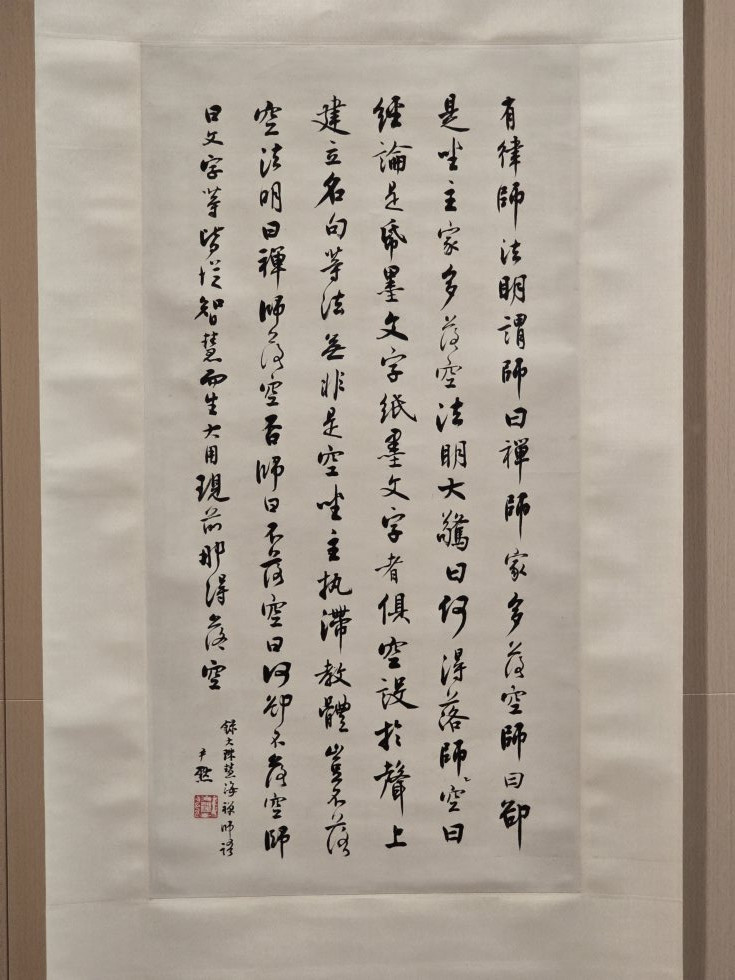 有律師法明謂師曰禪師家多落空師曰卻
是坐主家多落空法明大驚曰何得落師空曰
經論是帋墨文字紙墨文字者俱空設於聲上
建立名句等法無非是空坐主执滯教體豈不落
空法明曰禪師落空否師曰不落空曰何卻不落空師
曰文字等皆從智慧而生大用現前那得落空
錄大珠慧海禪師語
尹默